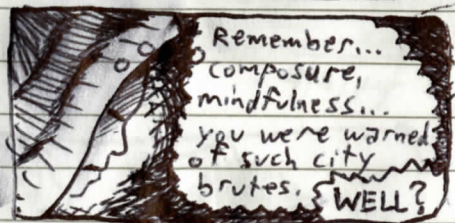 Remember...
composure,
mindfulness...
you were warned
of such city
brutes.
WELL?